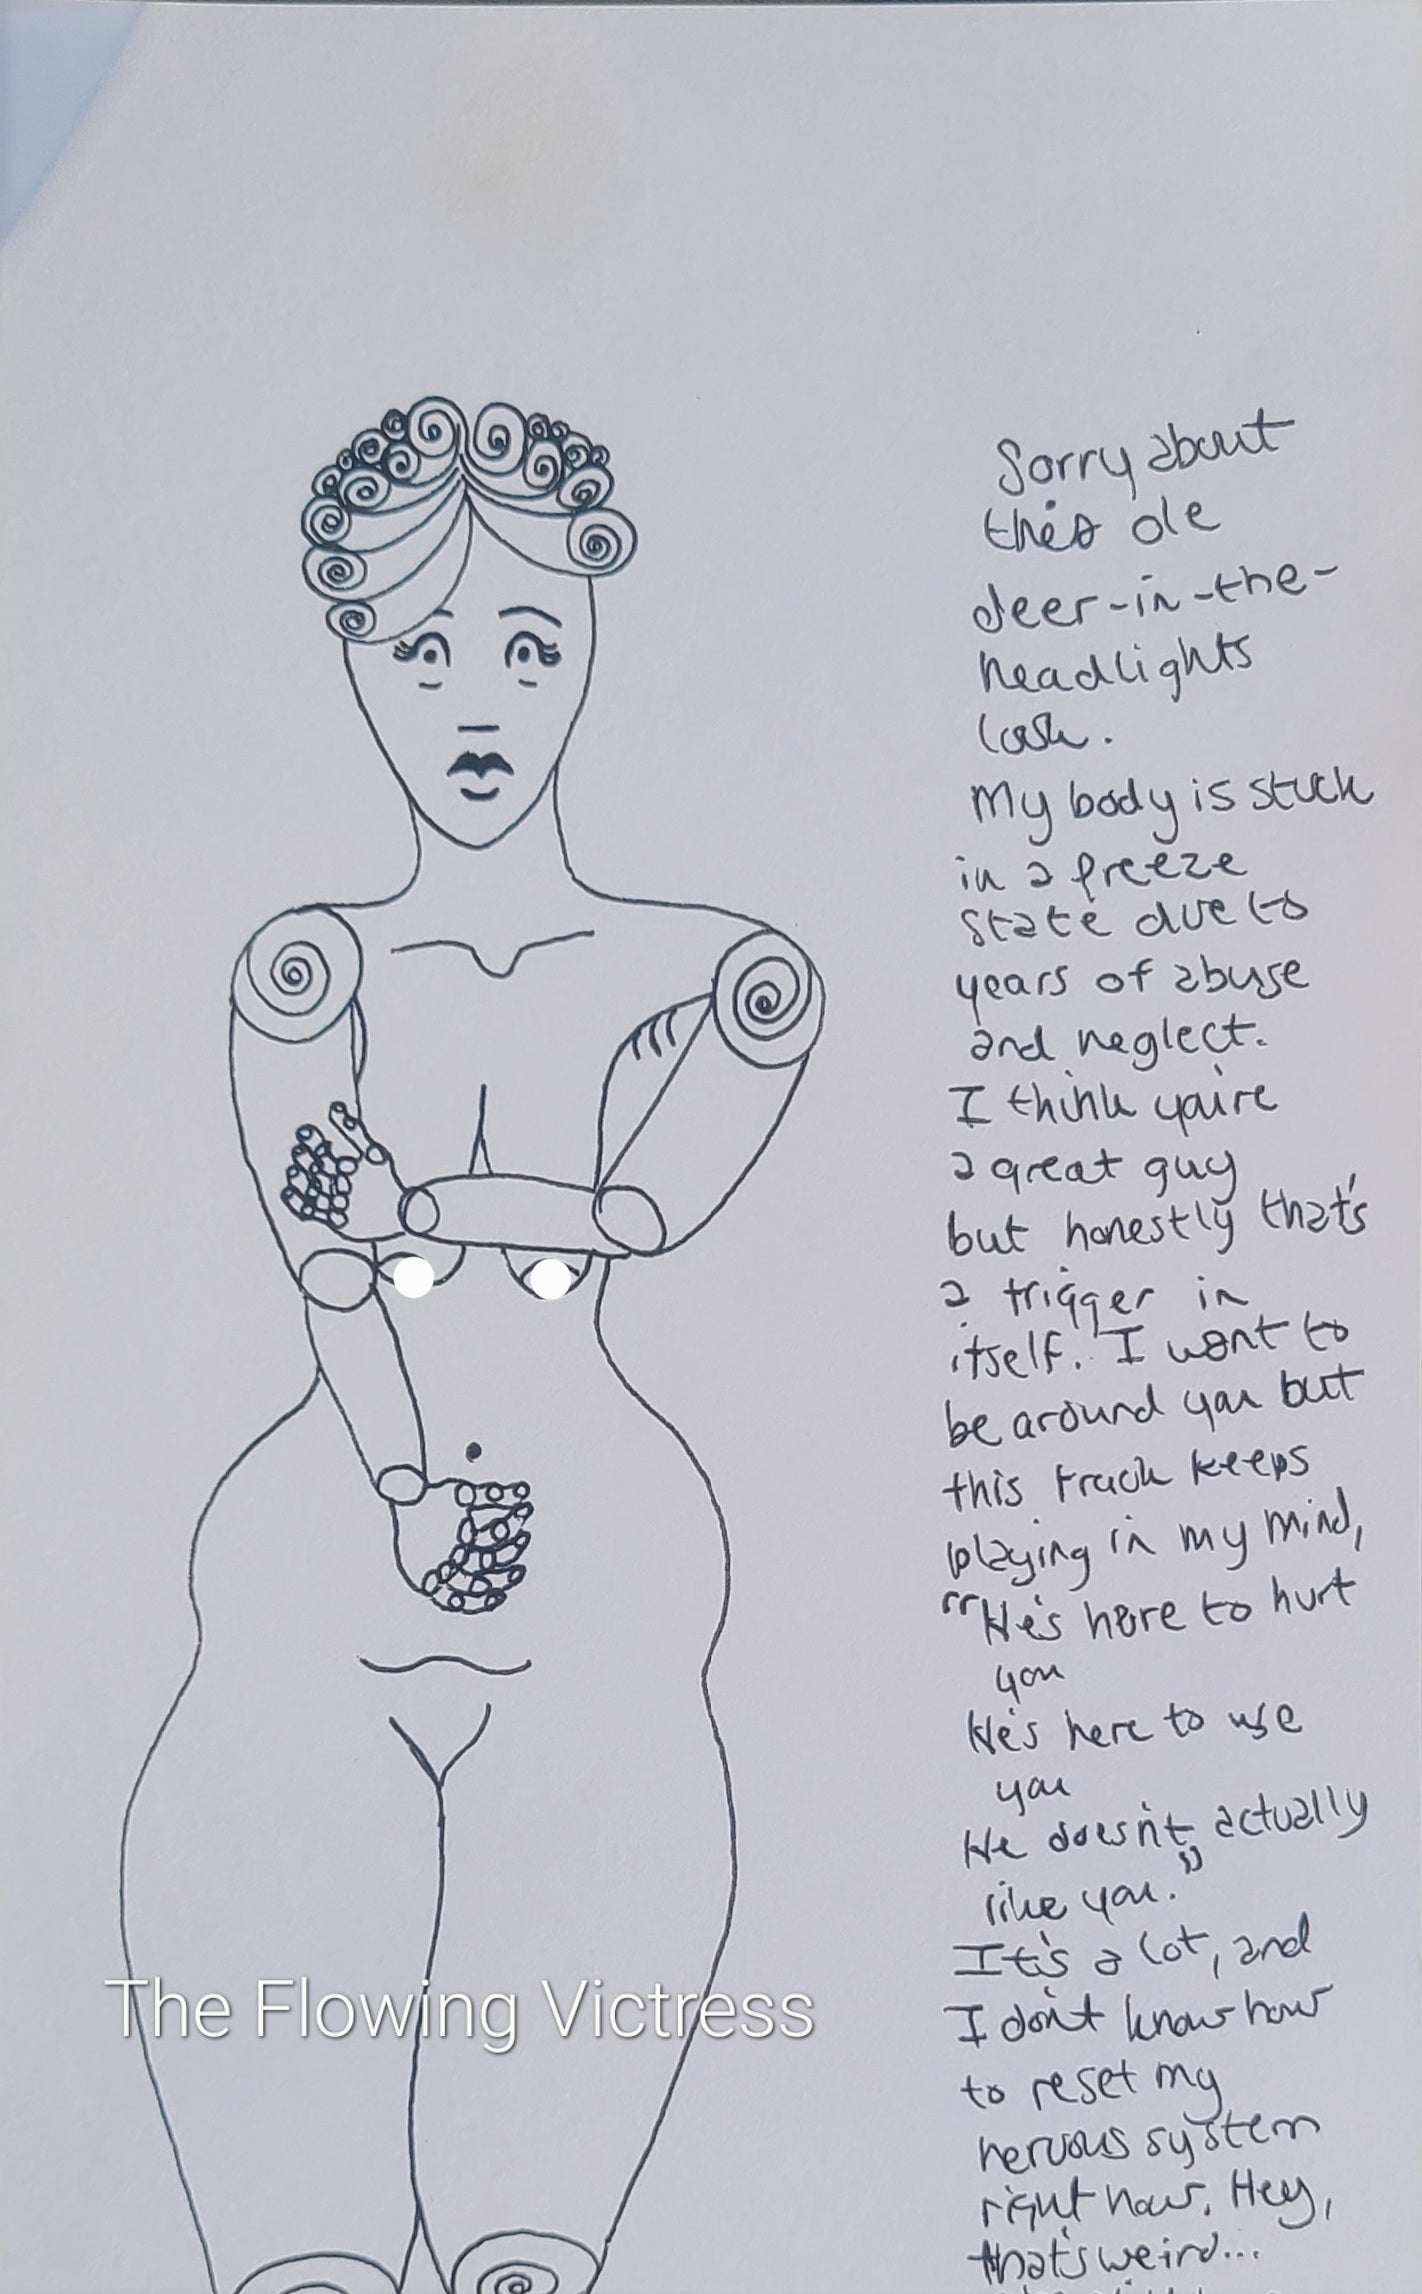 Sorry about
this ole
deer-in-the-
headlights
look.
My body is stuck
in a freeze
state due to
years of abuse
and neglect.
I think you're
a great guy
but honestly that's
a trigger in
itself. I want to
be around you but
this track keeps
playing in my mind,
"He's here to hurt
you
He's here to use
you
He doesn't actually
like you."
It's a lot, and
I don't know how
to reset my
nervous system
right now. Hey,
that's weird...
The Flowing Victress